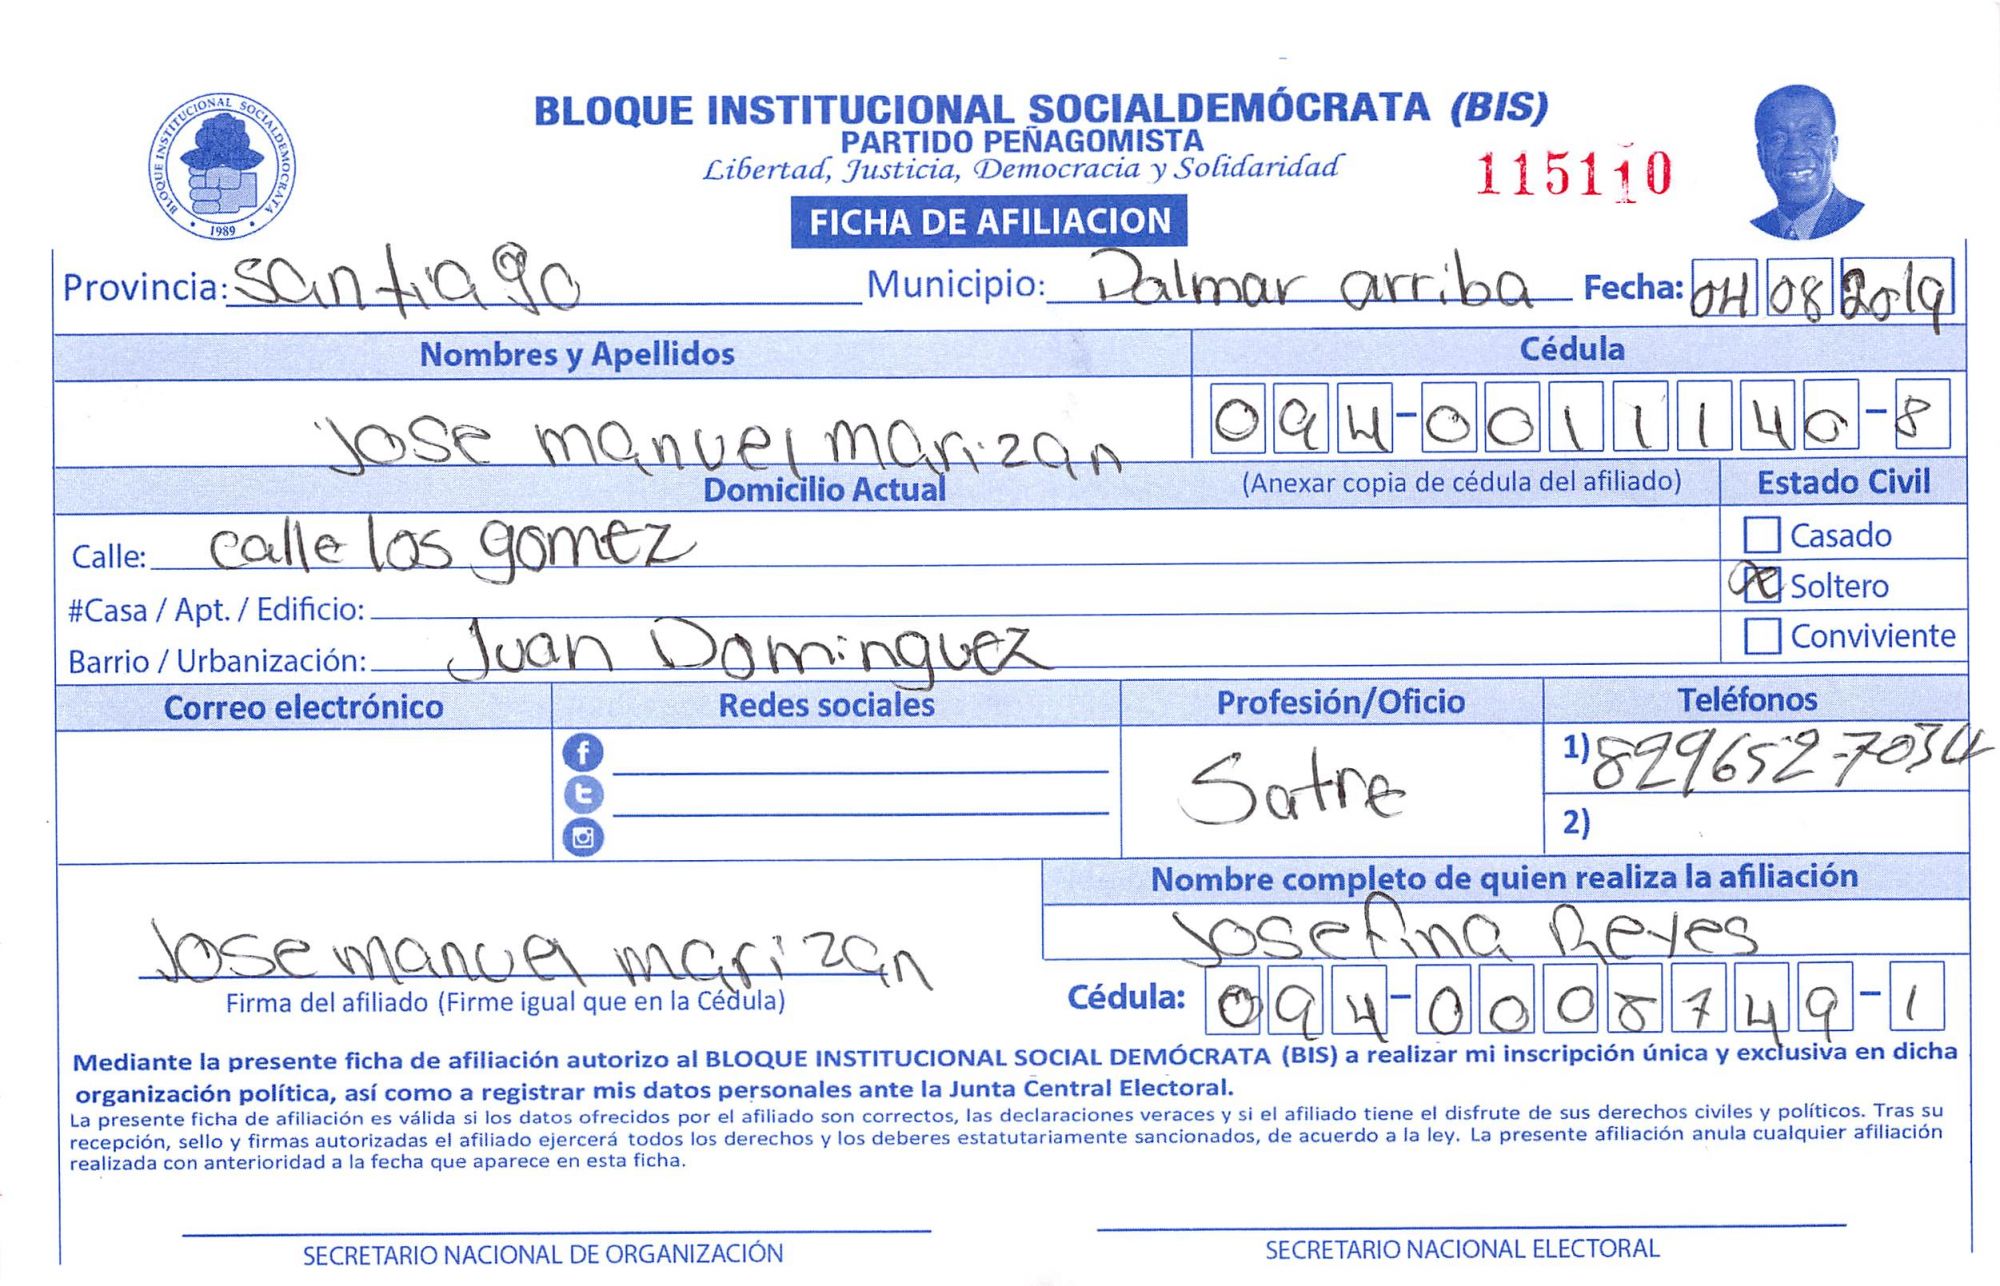 BLOQUE INSTITUCIONAL SOCIALDEMOCRATA
1989
BLOQUE INSTITUCIONAL SOCIALDEMÓCRATA (BIS)
PARTIDO PEÑAGOMISTA
Libertad, Justicia, Democracia y Solidaridad
115110
FICHA DE AFILIACION
Provincia: santiago Municipio: Palmar arriba Fecha: 04 08 2019
Nombres y Apellidos Cédula
Jose manuel marizan 094-0011140-8
Domicilio Actual (Anexar copia de cédula del afiliado) Estado Civil
Calle: calle los gomez Casado
#Casa / Apt. / Edificio: Soltero
Barrio / Urbanización: Juan Dominguez Conviviente
Correo electrónico Redes sociales Profesión/Oficio Teléfonos
Satre 1) 829652-7034
2)
Nombre completo de quien realiza la afiliación
Josefina Reyes
Jose manuel marizan
Firma del afiliado (Firme igual que en la Cédula) Cédula: 094-0008749-1
Mediante la presente ficha de afiliación autorizo al BLOQUE INSTITUCIONAL SOCIAL DEMÓCRATA (BIS) a realizar mi inscripción única y exclusiva en dicha
organización política, así como a registrar mis datos personales ante la Junta Central Electoral.
La presente ficha de afiliación es válida si los datos ofrecidos por el afiliado son correctos, las declaraciones veraces y si el afiliado tiene el disfrute de sus derechos civiles y políticos. Tras su
recepción, sello y firmas autorizadas el afiliado ejercerá todos los derechos y los deberes estatutariamente sancionados, de acuerdo a la ley. La presente afiliación anula cualquier afiliación
realizada con anterioridad a la fecha que aparece en esta ficha.
SECRETARIO NACIONAL DE ORGANIZACIÓN SECRETARIO NACIONAL ELECTORAL